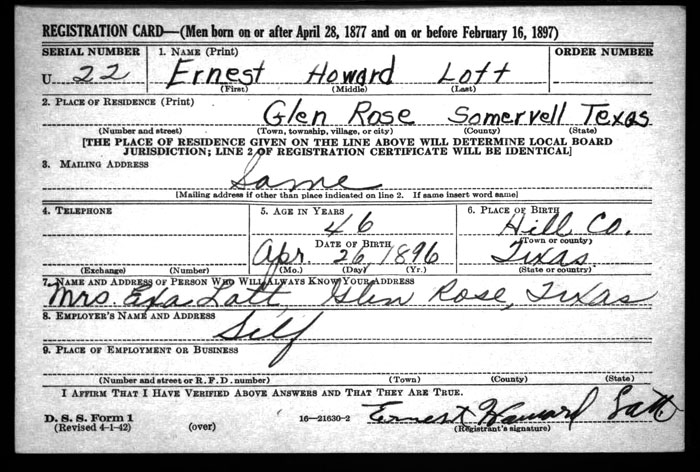 REGISTRATION CARD—(Men born on or after April 28, 1877 and on or before February 16, 1897)
SERIAL NUMBER 1. NAME (Print) ORDER NUMBER
U 22 Ernest Howard Lott
(First) (Middle) (Last)
2. PLACE OF RESIDENCE (Print)
Glen Rose Somervell Texas
(Number and street) (Town, township, village, or city) (County) (State)
[THE PLACE OF RESIDENCE GIVEN ON THE LINE ABOVE WILL DETERMINE LOCAL BOARD
JURISDICTION; LINE 2 OF REGISTRATION CERTIFICATE WILL BE IDENTICAL]
3. MAILING ADDRESS
Same
[Mailing address if other than place indicated on line 2. If same insert word same]
4. TELEPHONE 5. AGE IN YEARS 6. PLACE OF BIRTH
46 Hill Co.
DATE OF BIRTH (Town or county)
Apr. 26, 1896 Texas
(Exchange) (Number) (Mo.) (Day) (Yr.) (State or country)
7. NAME AND ADDRESS OF PERSON WHO WILL ALWAYS KNOW YOUR ADDRESS
Mrs. Lott, Glen Rose, Texas
8. EMPLOYER'S NAME AND ADDRESS
Self
9. PLACE OF EMPLOYMENT OR BUSINESS
(Number and street or R. F. D. number) (Town) (County) (State)
I AFFIRM THAT I HAVE VERIFIED ABOVE ANSWERS AND THAT THEY ARE TRUE.
D. S. S. Form 1
(Revised 4-1-42) (over) 16—21630-2 Ernest Howard Lott
(Registrant's signature)